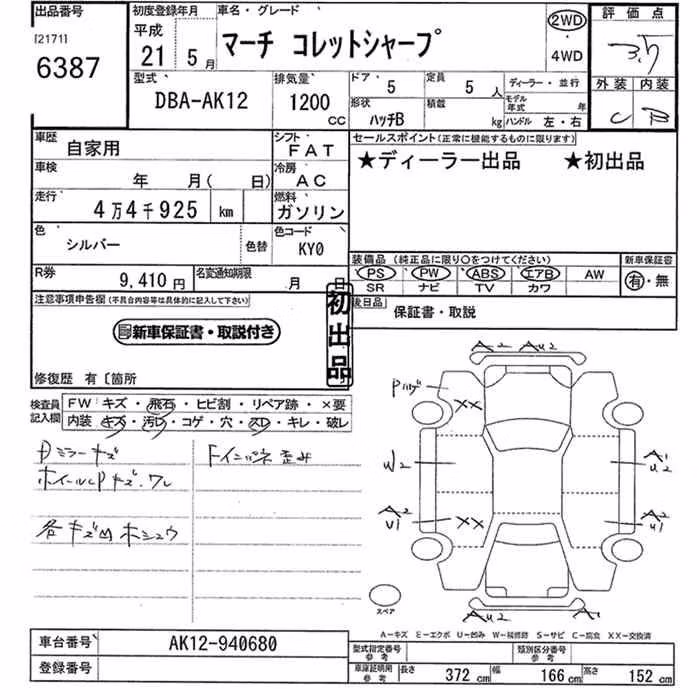 出品番号 初度登録年月 車名・グレード 評価点
[2171] 平成 2WD
6387 21 5月 マーチ コレットシャープ 4WD 3.5
型式 排気量 ドア 5 定員 5人 ディーラー・並行 外装 内装
DBA-AK12 1200cc 形状 ハッチB 積載 kg モデル年式 年 C B
ハンドル 左・右
車歴 自家用 シフト FAT セールスポイント(正常に機能するものに限ります)
車検 年 月( 日) 冷房 AC ★ディーラー出品 ★初出品
走行 4万4千925 km 燃料 ガソリン
色 シルバー 色替 色コード KY0 装備品(純正品に限り○をつけてください) 新車保証書
R券 9,410円 名変通知期限 月 日 PS PW ABS エアB AW 有・無
SR ナビ TV カワ
注意事項申告欄(不具合内容等は具体的に記入して下さい) 初出品 後日品 保証書・取説
新車保証書・取説付き
修復歴 有〔箇所
検査員記入欄 FW キズ・飛石・ヒビ割・リペア跡・×要
内装 キズ・汚レ・コゲ・穴・スレ・キレ・破レ
Dミラーキズ Fインパネ歪み
ホイールCPキズ・ワレ
各キズ凹ホシュウ
A2 AU2
Pハゲ XX
W2 A1 U2
A2 U1 XX A2 U1
AU2 A1
スペア
A-キズ E-エクボ U-凹み W-補修跡 S-サビ C-腐食 XX-交換済
車台番号 AK12-940680 型式指定番号 参考 類別区分番号 参考
登録番号 車庫証明用 参考 長さ 372cm 幅 166cm 高さ 152cm